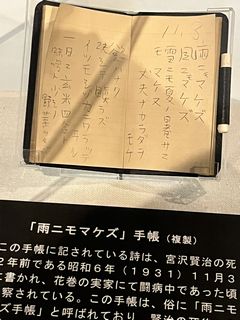 11.3.
雨ニモマケズ
風ニモマケズ
雪ニモ夏ノ暑サニ
モ マケズ
丈夫ナカラダヲ
モチ
慾ハナク
決シテ瞋ラズ
イツモシヅカニワラッテ
ヰル
一日ニ玄米四合ト
味噌ト少シノ
野菜ヲ
「雨ニモマケズ」手帳（複製）
この手帳に記されている詩は、宮沢賢治の死
2年前である昭和6年（1931）11月3
に書かれ、花巻の実家にて闘病中であった頃
察されている。この手帳は、俗に「雨ニモ
ズ手帳」と呼ばれており、賢治の死